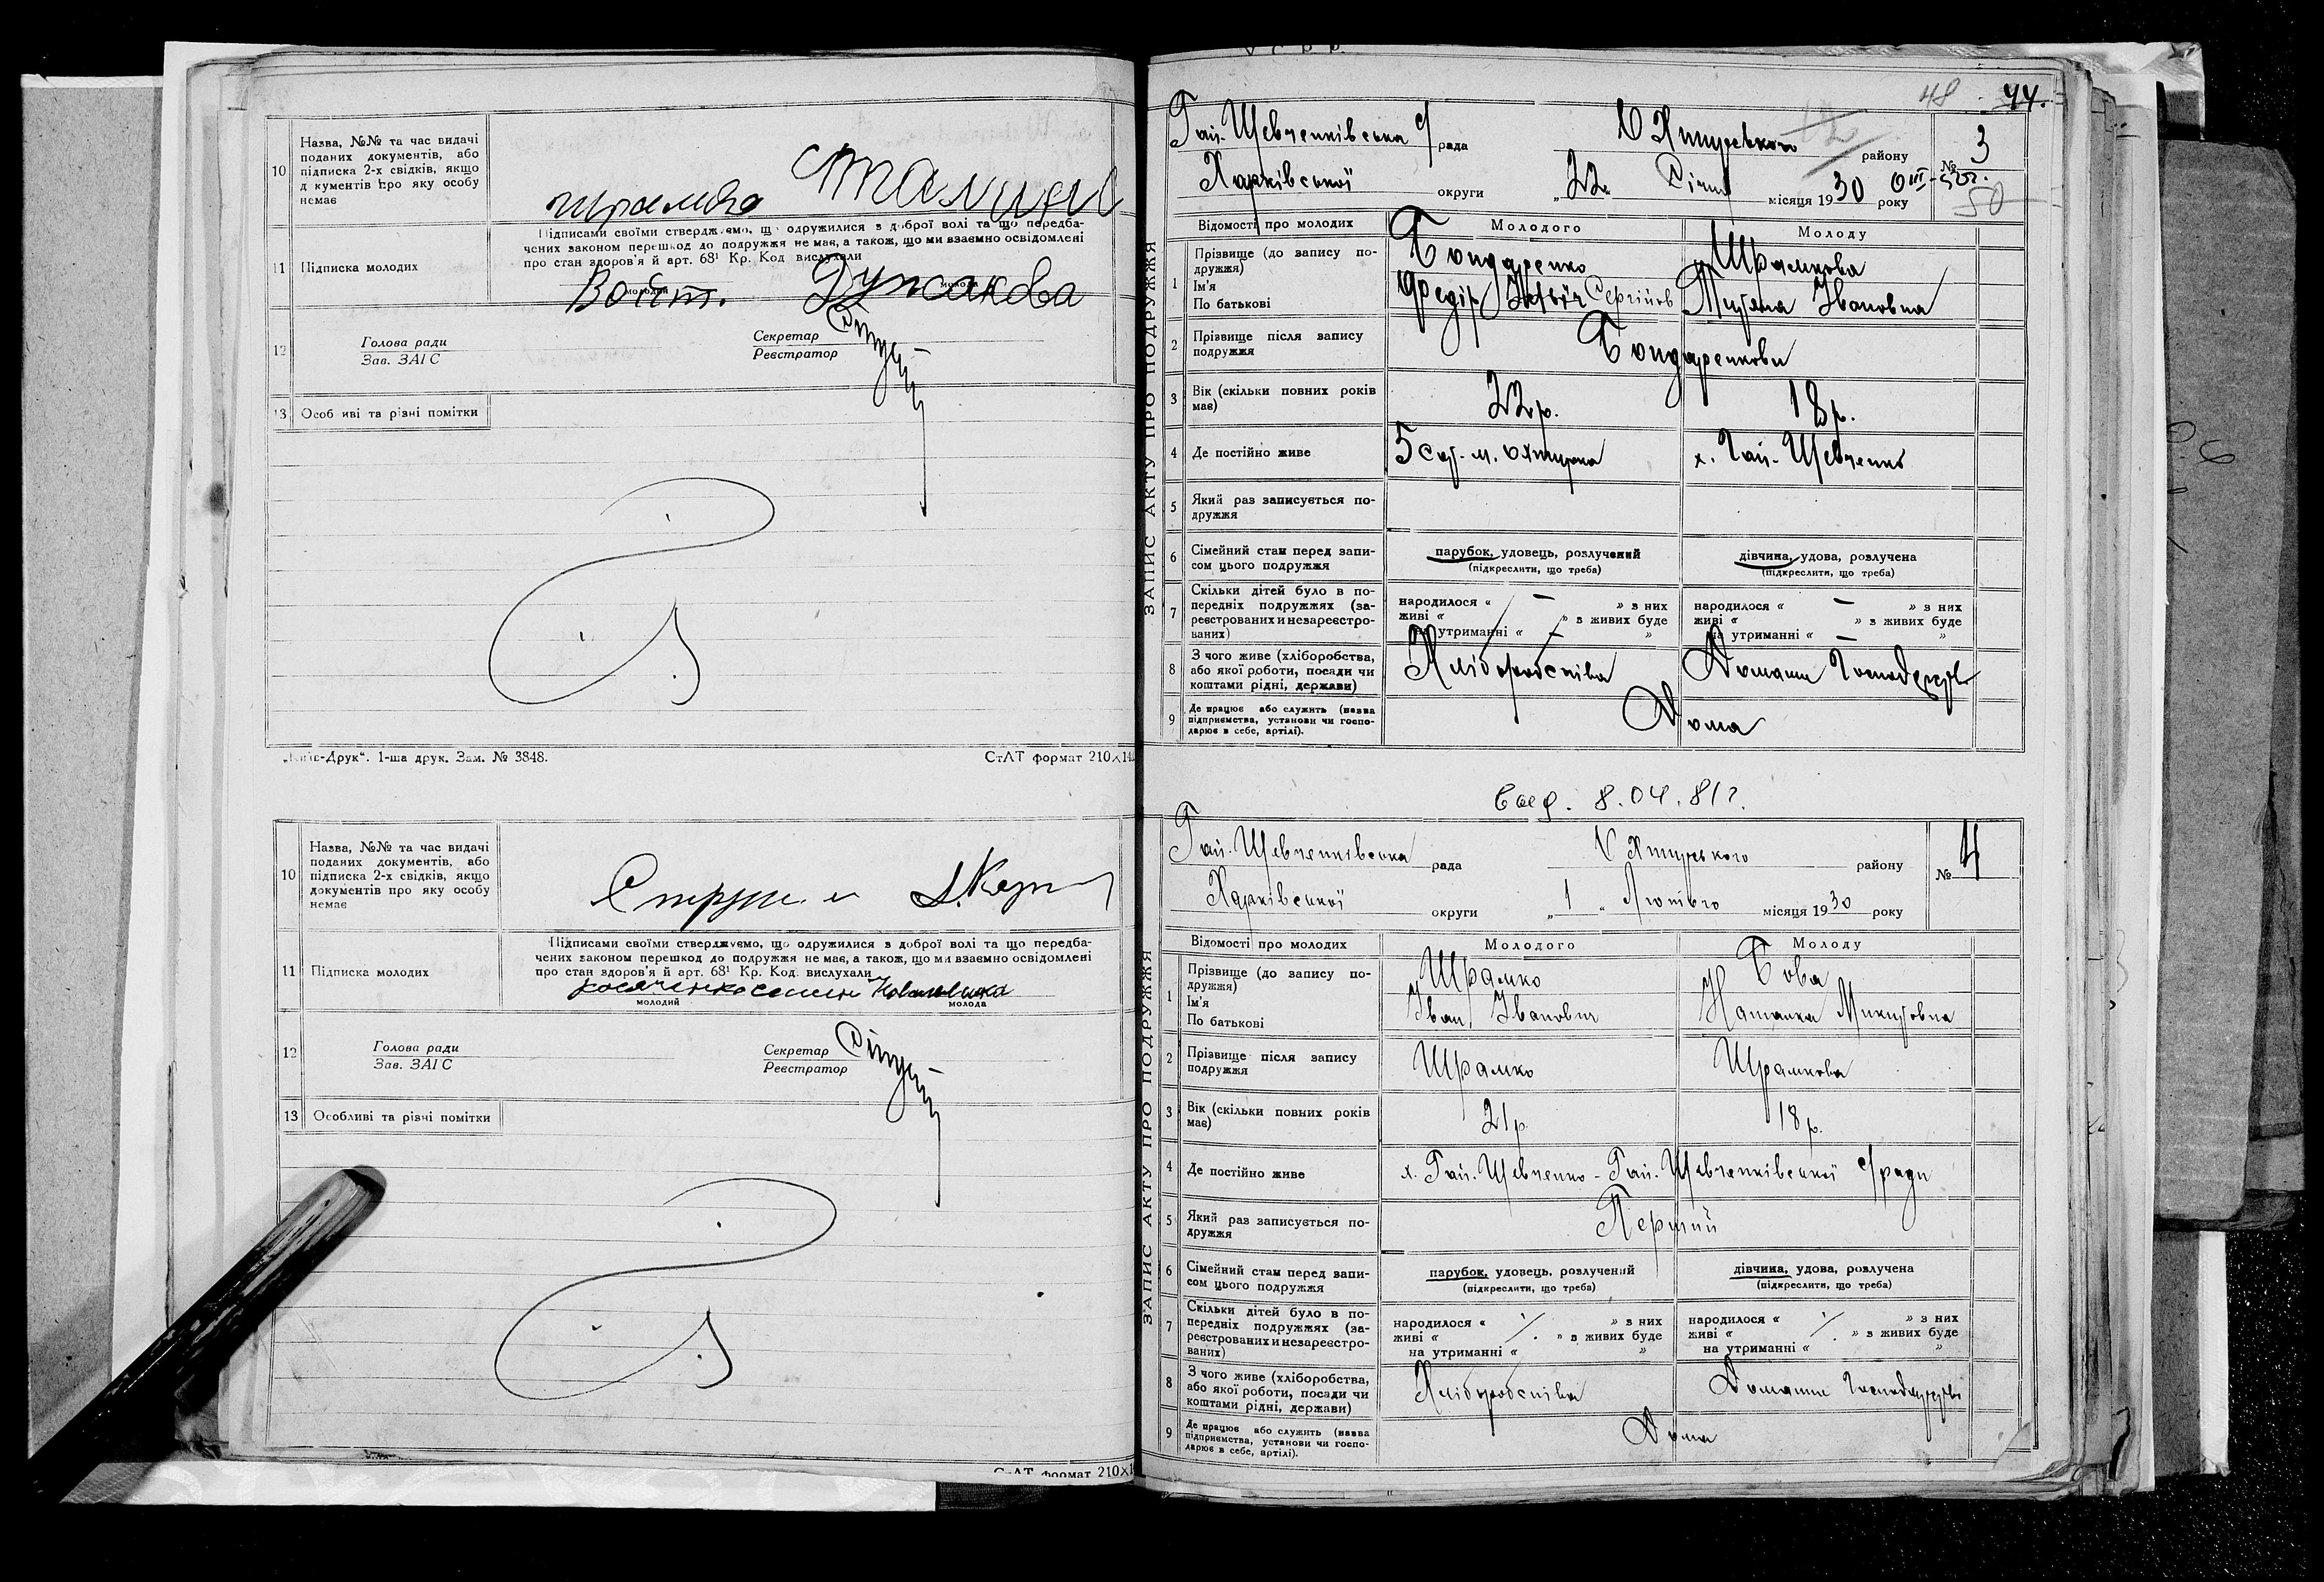 10 Назва, №№ та час видачі
поданих документів, або
підписка 2-х свідків, якщо
д кументів про яку особу
немає
Підписами своїми стверджуємо, що одружилися з доброї волі та що передба-
чених законом перешкод до подружжя не має, а також, що ми взаємно освідомлені
про стан здоров'я й арт. 68¹ Кр. Код вислухали
11 Підписка молодих
Войт. Дужакова
молодий молода
12 Голова ради Секретар
Зав. ЗАГС Реєстратор
13 Особ иві та різні помітки
„Київ-Друк“. 1-ша друк. Зам. № 3848. СтАТ формат 210×14
10 Назва, №№ та час видачі
поданих документів, або
підписка 2-х свідків, якщо
документів про яку особу
немає
Підписами своїми стверджуємо, що одружилися з доброї волі та що передба-
чених законом перешкод до подружжя не має, а також, що ми взаємно освідомлені
про стан здоров'я й арт. 68¹ Кр. Код. вислухали
11 Підписка молодих
молодий молода
12 Голова ради Секретар
Зав. ЗАГС Реєстратор
13 Особливі та різні помітки
СтАТ формат 210×1
У С Р Р
48 44.
ЗАПИС АКТУ ПРО ПОДРУЖЖЯ
Гай-Шевченківська с/рада Охтирського району № 3
Харківської округи „22“ Січня місяця 1930 року
50
Відомості про молодих Молодого Молоду
1 Прізвище (до запису по-
дружжя) Бондаренко Шрамкова
Ім'я
По батькові Федір Сергійов Тетяна Івановна
2 Прізвище після запису
подружжя Бондаренкови
3 Вік (скільки повних років
має) 22р. 18р.
4 Де постійно живе 5 сот. м. Охтирка х. Гай-Шевченко
5 Який раз записується по-
дружжя
6 Сімейний стан перед запи-
сом цього подружжя
парубок, удовець, розлучений дівчина, удова, розлучена
(підкреслити, що треба) (підкреслити, що треба)
7 Скільки дітей було в по-
передніх подружжях (за-
реєстрованих и незареєстро-
ваних)
народилося « — » з них народилося « — » з них
живі « » з живих буде живі « » з живих буде
на утриманні « — » на утриманні « — »
8 З чого живе (хліборобства,
або якої роботи, посади чи
коштами рідні, держави)
Хліборобства Домашн Господарств
9 Де працює або служить (назва
підприємства, установи чи госпо-
дарює в себе, артілі).
Дома
8.04.81г.
ЗАПИС АКТУ ПРО ПОДРУЖЖЯ
Гай-Шевченківська рада Охтирського району № 4
Харківської округи „1“ Лютого місяця 1930 року
Відомості про молодих Молодого Молоду
1 Прізвище (до запису по-
дружжя) Шрамко Бова
Ім'я Іван Іванович Наталка Микитовна
По батькові
2 Прізвище після запису
подружжя Шрамко Шрамкова
3 Вік (скільки повних років
має) 21р. 18р.
4 Де постійно живе х. Гай-Шевченко - Гай-Шевченківської с/ради
5 Який раз записується по-
дружжя Перший
6 Сімейний стан перед запи-
сом цього подружжя
парубок, удовець, розлучений дівчина, удова, розлучена
(підкреслити, що треба) (підкреслити, що треба)
7 Скільки дітей було в по-
передніх подружжях (за-
реєстрованих и незареєстро-
ваних)
народилося « » з них народилося « » з них
живі « » з живих буде живі « » з живих буде
на утриманні « » на утриманні « »
8 З чого живе (хліборобства,
або якої роботи, посади чи
коштами рідні, держави)
Хліборобства Домашн Господарств
9 Де працює або служить (назва
підприємства, установи чи госпо-
дарює в себе, артілі).
Дома